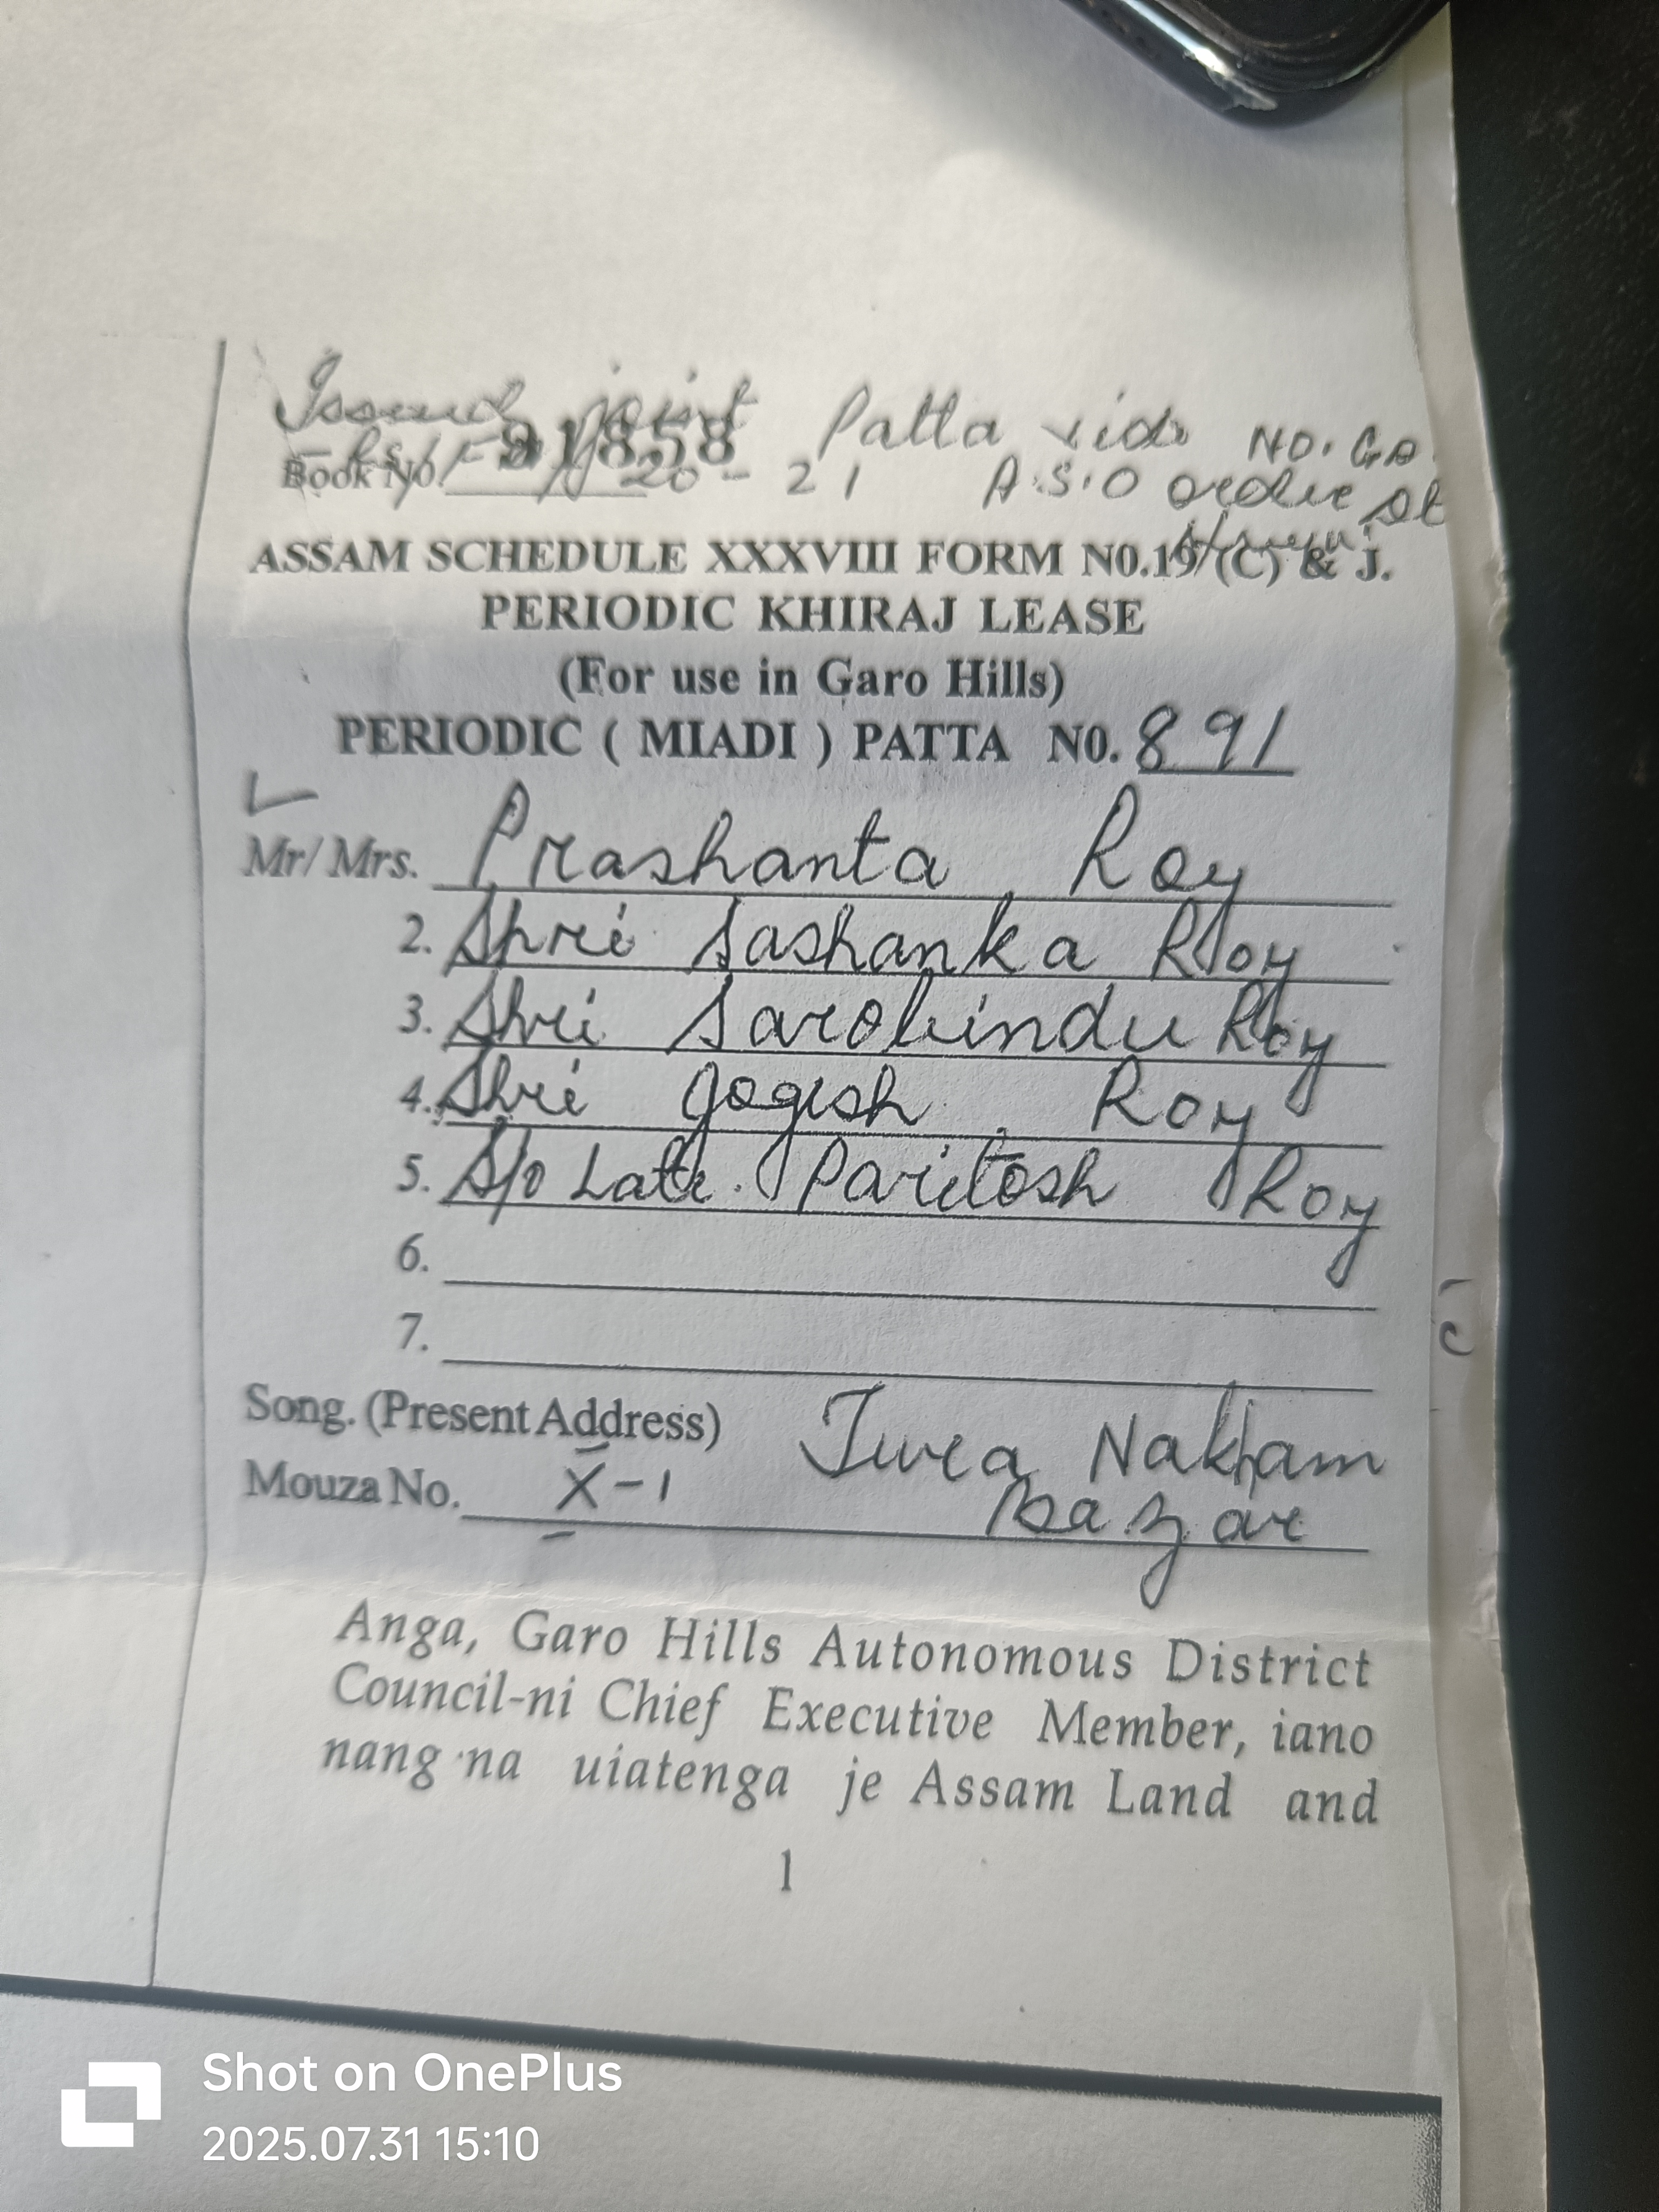 Issued joint Patta vide NO. GA
Book No. 91858 20-21 A.S.O order dt
ASSAM SCHEDULE XXXVIII FORM NO.19/(C) & J.
PERIODIC KHIRAJ LEASE
(For use in Garo Hills)
PERIODIC ( MIADI ) PATTA NO. 891
Mr/ Mrs. Prashanta Roy
2. Shri Sashanka Roy
3. Shri Sarobindu Roy
4. Shri Jogesh Roy
5. S/o Late. Paritosh Roy
6.
7.
Song. (Present Address) Tura Nakham
Mouza No. X-1 Bazar
Anga, Garo Hills Autonomous District
Council-ni Chief Executive Member, iano
nang·na uiatenga je Assam Land and
1
Shot on OnePlus
2025.07.31 15:10